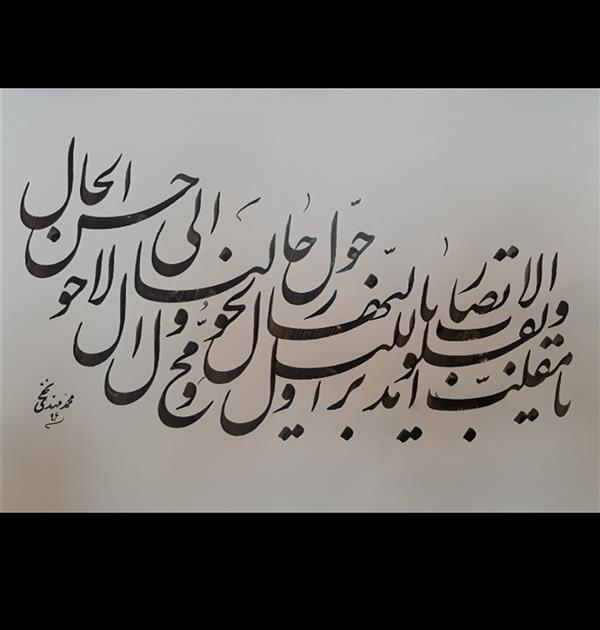 یا مقلب القلوب و الابصار
یا مدبر اللیل و النهار
یا محول الحول و الاحوال
حوّل حالنا الی احسن الحال
محمد مهدی
۹۶